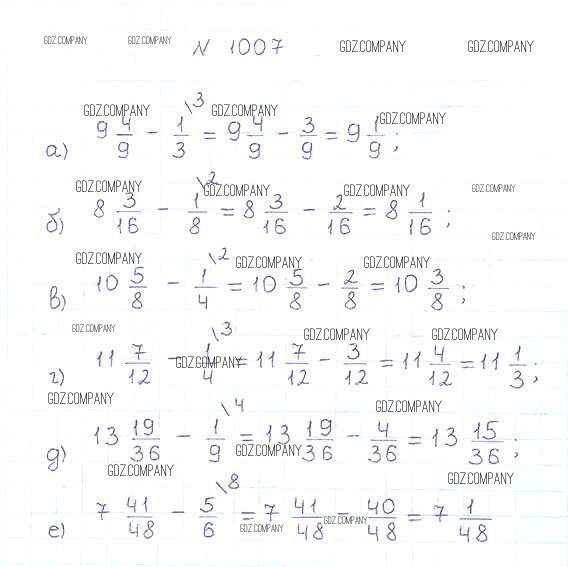 GDZ.COMPANY GDZ.COMPANY № 1007 GDZ.COMPANY GDZ.COMPANY
GDZ.COMPANY GDZ.COMPANY GDZ.COMPANY
а) 9 4/9 - 1/3 \3 = 9 4/9 - 3/9 = 9 1/9;
GDZ.COMPANY GDZ.COMPANY GDZ.COMPANY GDZ.COMPANY
б) 8 3/16 - 1/8 \2 = 8 3/16 - 2/16 = 8 1/16;
GDZ.COMPANY
GDZ.COMPANY GDZ.COMPANY GDZ.COMPANY
в) 10 5/8 - 1/4 \2 = 10 5/8 - 2/8 = 10 3/8;
GDZ.COMPANY GDZ.COMPANY GDZ.COMPANY
г) 11 7/12 - 1/4 \3 = 11 7/12 - 3/12 = 11 4/12 = 11 1/3;
GDZ.COMPANY
GDZ.COMPANY GDZ.COMPANY
д) 13 19/36 - 1/9 \4 = 13 19/36 - 4/36 = 13 15/36;
GDZ.COMPANY
GDZ.COMPANY GDZ.COMPANY
е) 7 41/48 - 5/6 \8 = 7 41/48 - 40/48 = 7 1/48
GDZ.COMPANY GDZ.COMPANY